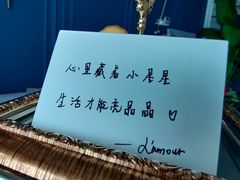 心里藏着小星星
生活才能亮晶晶♡
— L'amour